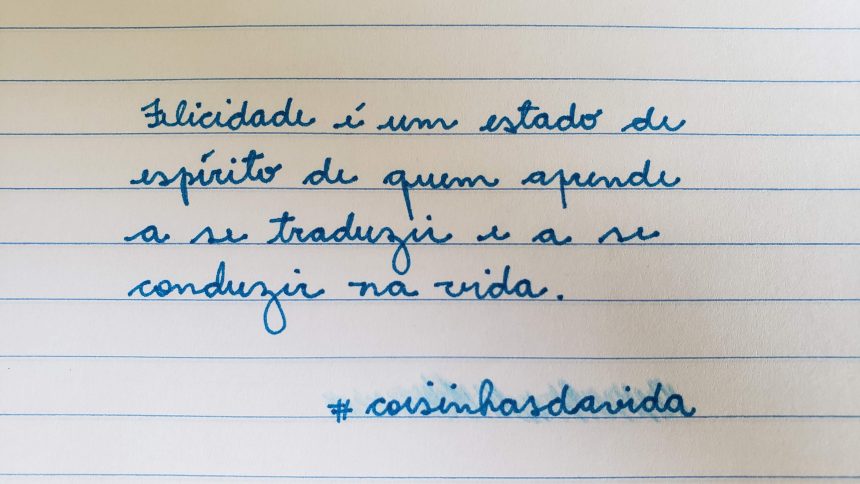 Felicidade é um estado de
espírito de quem aprende
a se traduzir e a se
conduzir na vida.
#coisinhasdavida